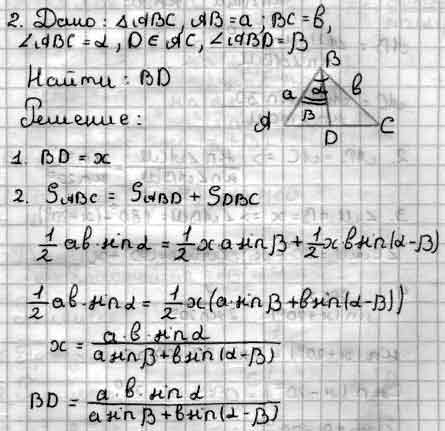 2. Дано: △ABC, AB=a; BC=b,
∠ABC=α, D∈AC, ∠ABD=β
Найти: BD
Решение:
B
a α b
β
A D C
1. BD=x
2. S_ABC = S_ABD + S_DBC
1/2 ab·sinα = 1/2 x a sinβ + 1/2 x b sin(α-β)
1/2 ab·sinα = 1/2 x(a·sinβ + b sin(α-β))
x = a·b·sinα / a sinβ + b sin(α-β)
BD = a·b·sinα / a sinβ + b sin(α-β)